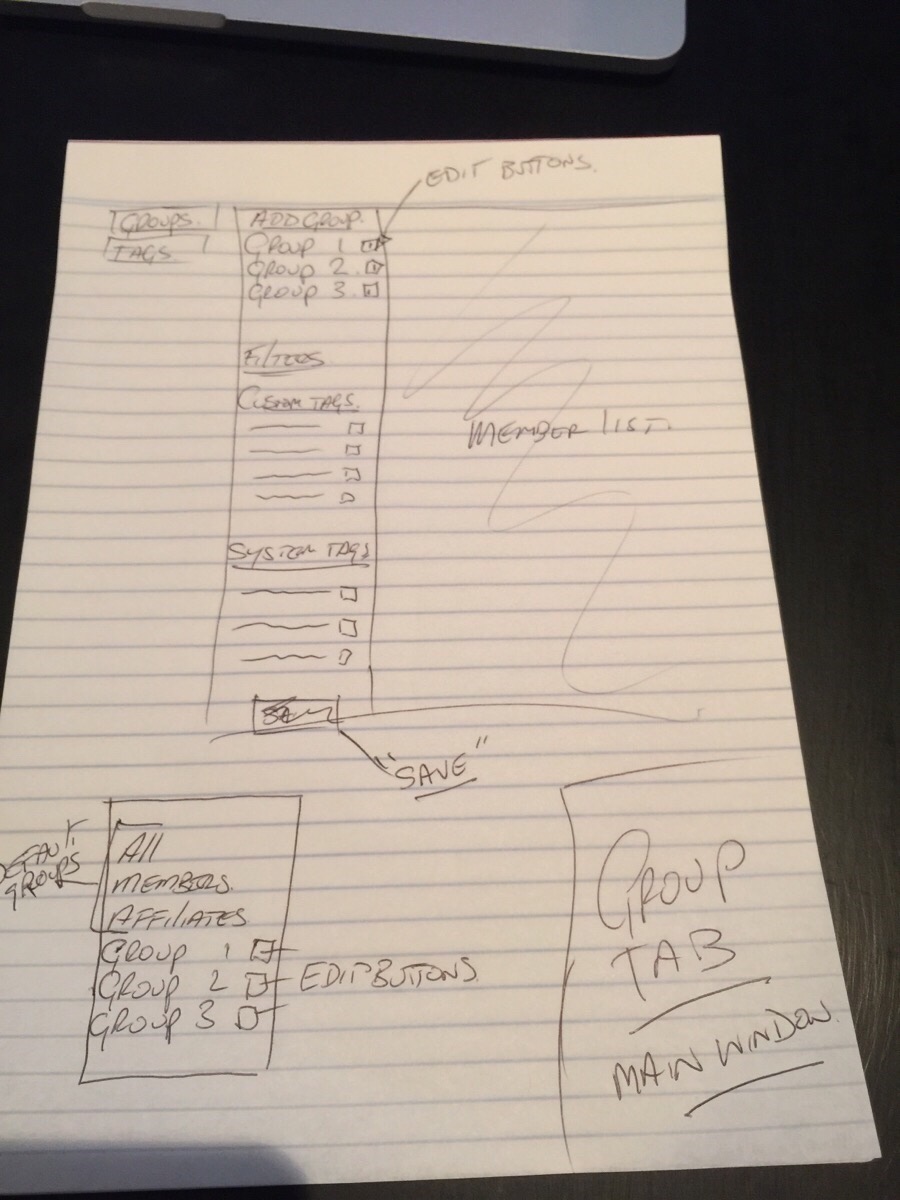 EDIT BUTTONS.
GROUPS.
TAGS
ADD GROUP.
Group 1
Group 2.
Group 3.
Filters
Custom TAGS.
MEMBER LIST.
SYSTEM TAGS
"SAVE"
DEFAULT
GROUPS
All
MEMBERS.
AFFILIATES
GROUP 1
GROUP 2
GROUP 3
EDIT BUTTONS.
GROUP
TAB
MAIN WINDOW.